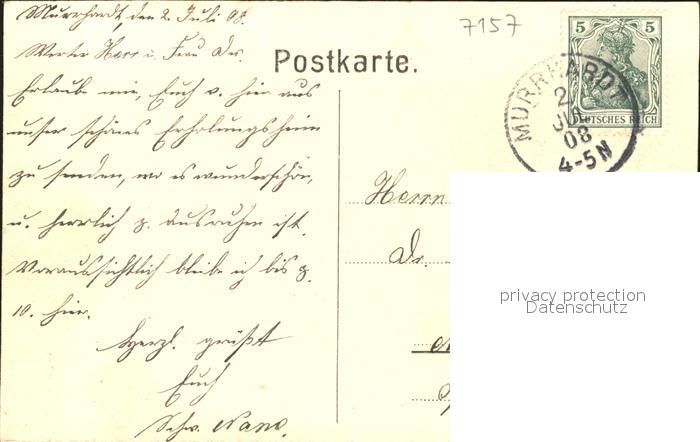 Murrhardt, den 2. Juli 08.
Werter Herr u. Frau Dr.
Erlaube mir, Euch v. hier aus
unser schönes Erholungsheim
zu senden, wo es wunderschön,
u. herrlich z. Ausruhen ist.
Voraussichtlich bleibe ich bis z.
10. hier.
Herzl. grüßt
Euch
Schw. Nane.
7157
Postkarte.
5 5
DEUTSCHES REICH
MURRHARDT
2
JUL
08
4-5N
Herrn
Dr.
privacy protection
Datenschutz